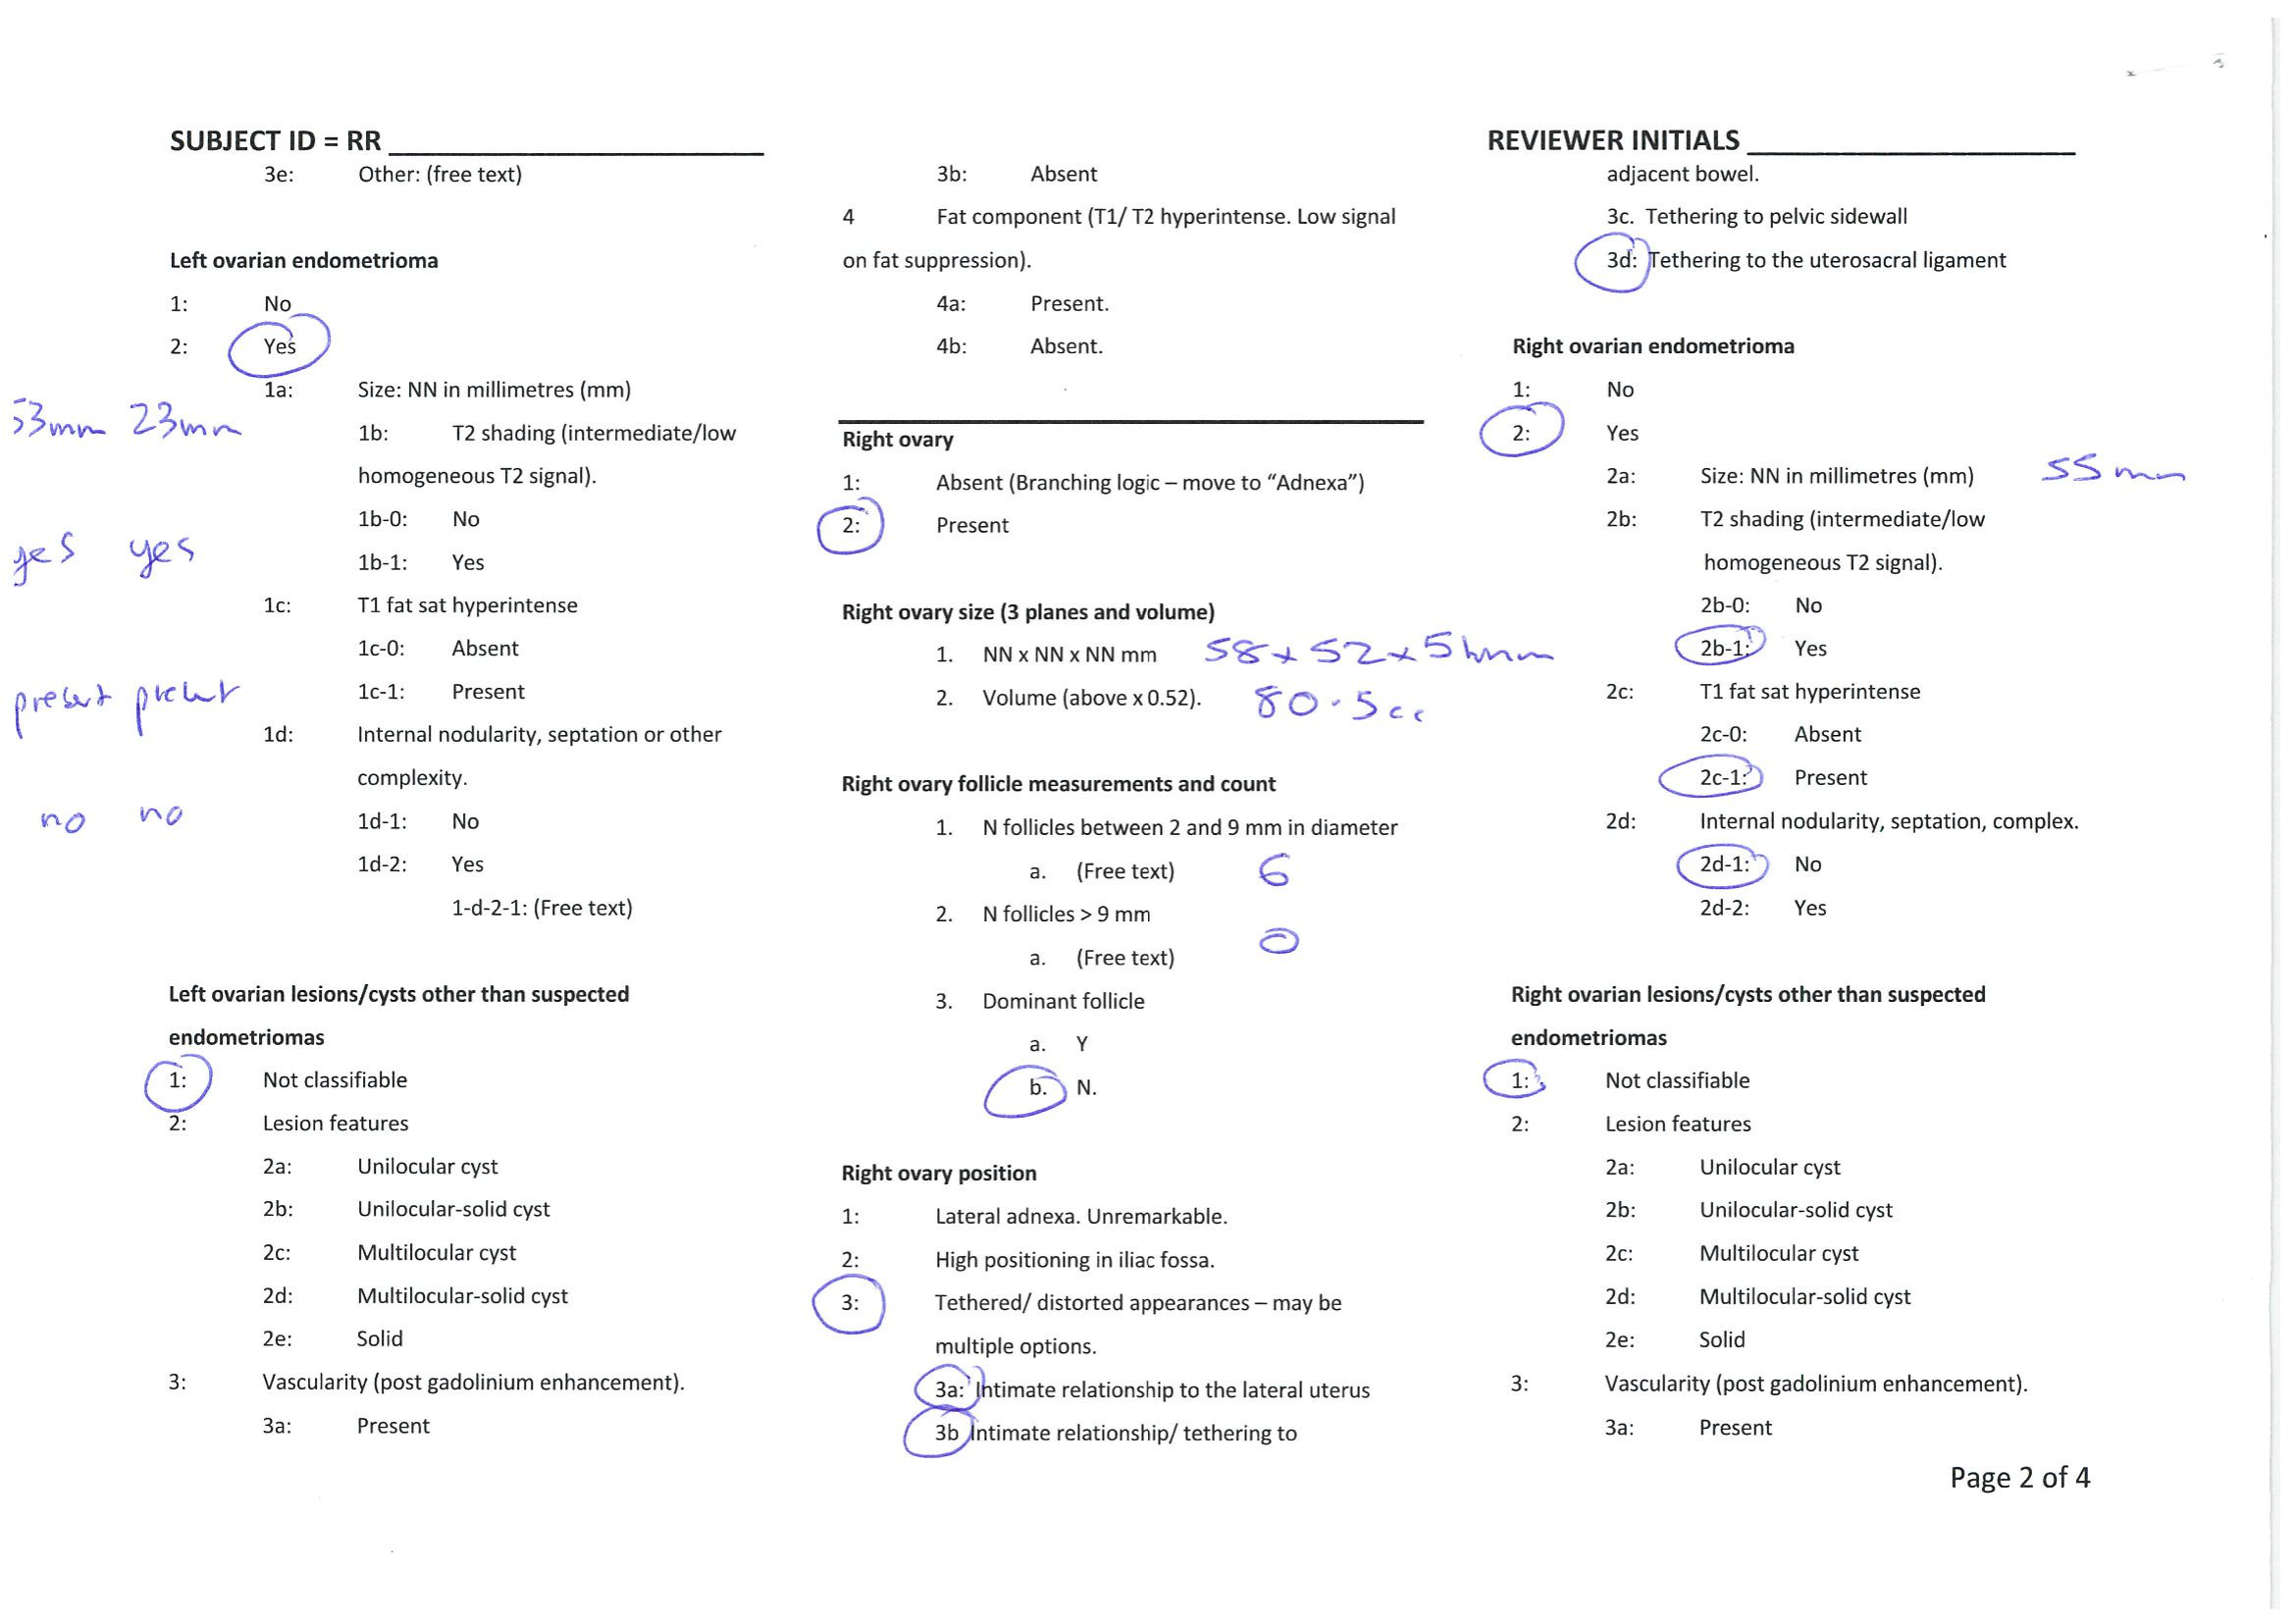 SUBJECT ID = RR
3e: Other: (free text)
Left ovarian endometrioma
1: No
2: Yes
1a: Size: NN in millimetres (mm)
53mm 23mm
1b: T2 shading (intermediate/low
homogeneous T2 signal).
1b-0: No
1b-1: Yes
yes yes
1c: T1 fat sat hyperintense
1c-0: Absent
1c-1: Present
present present
1d: Internal nodularity, septation or other
complexity.
1d-1: No
no no
1d-2: Yes
1-d-2-1: (Free text)
Left ovarian lesions/cysts other than suspected
endometriomas
1: Not classifiable
2: Lesion features
2a: Unilocular cyst
2b: Unilocular-solid cyst
2c: Multilocular cyst
2d: Multilocular-solid cyst
2e: Solid
3: Vascularity (post gadolinium enhancement).
3a: Present
3b: Absent
4 Fat component (T1/ T2 hyperintense. Low signal
on fat suppression).
4a: Present.
4b: Absent.
Right ovary
1: Absent (Branching logic – move to “Adnexa”)
2: Present
Right ovary size (3 planes and volume)
1. NN x NN x NN mm 58 x 52 x 51mm
2. Volume (above x 0.52). 80.5cc
Right ovary follicle measurements and count
1. N follicles between 2 and 9 mm in diameter
a. (Free text) 6
2. N follicles > 9 mm
a. (Free text) 0
3. Dominant follicle
a. Y
b. N.
Right ovary position
1: Lateral adnexa. Unremarkable.
2: High positioning in iliac fossa.
3: Tethered/ distorted appearances – may be
multiple options.
3a: Intimate relationship to the lateral uterus
3b Intimate relationship/ tethering to
REVIEWER INITIALS
adjacent bowel.
3c. Tethering to pelvic sidewall
3d: Tethering to the uterosacral ligament
Right ovarian endometrioma
1: No
2: Yes
2a: Size: NN in millimetres (mm) 55mm
2b: T2 shading (intermediate/low
homogeneous T2 signal).
2b-0: No
2b-1: Yes
2c: T1 fat sat hyperintense
2c-0: Absent
2c-1: Present
2d: Internal nodularity, septation, complex.
2d-1: No
2d-2: Yes
Right ovarian lesions/cysts other than suspected
endometriomas
1: Not classifiable
2: Lesion features
2a: Unilocular cyst
2b: Unilocular-solid cyst
2c: Multilocular cyst
2d: Multilocular-solid cyst
2e: Solid
3: Vascularity (post gadolinium enhancement).
3a: Present
Page 2 of 4